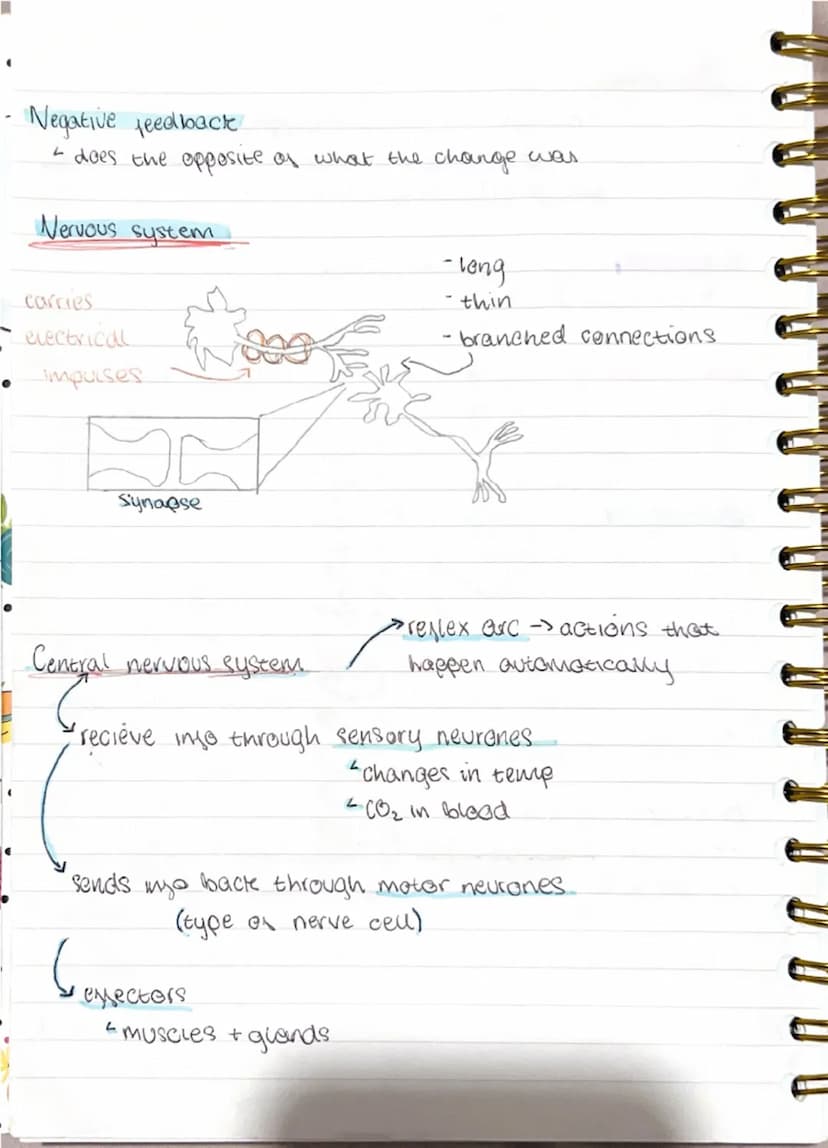 Negative feedback
does the opposite of what the change was
Nervous system
- long
- thin
- branched connections
carries
electrical
impulses
Synapse
reflex arc → actions that
happen automatically
Central nervous system
recieve info through sensory neurones
changes in temp
CO₂ in blood
sends info back through motor neurones
(type of nerve cell)
effectors
muscles + glands